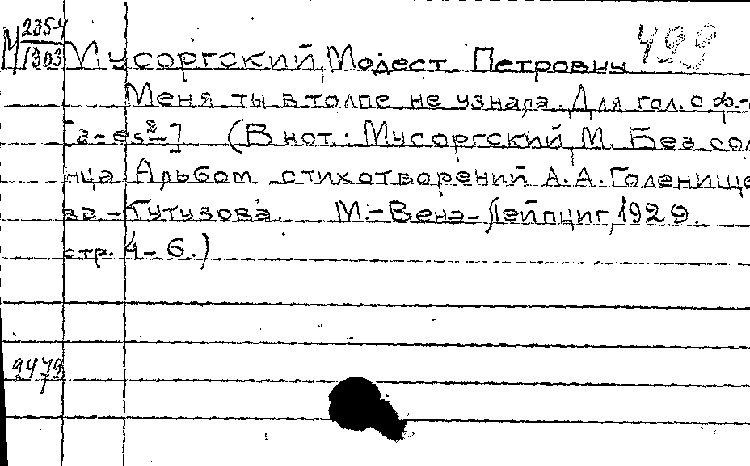 М 235-4
1303
499
Мусоргский, Модест Петрович
Меня ты в толпе не узнала. Для гол. с ф-
[a-es²-] (В нот.: Мусоргский М. Без сол
нца Альбом стихотворений А.А. Голенище
ва-Кутузова М.-Вена-Лейпциг, 1929.
стр. 4-6.)
9479